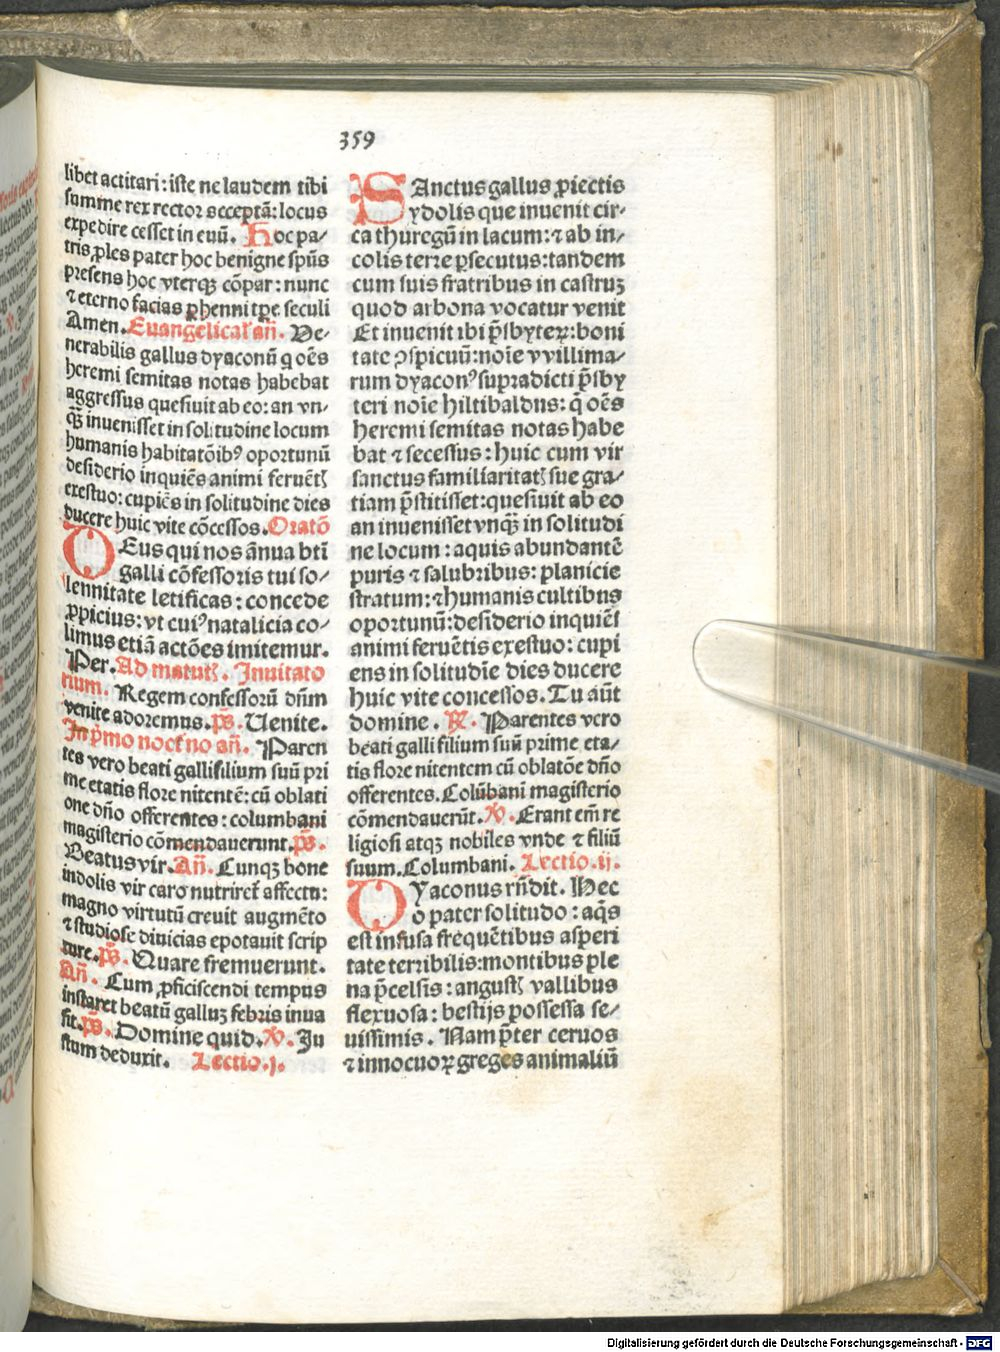 359
libet actitari: iste ne laudem tibi
summe rex rector ꝛ cceptā: locus
expedire cesset in euū. Hoc pa⸗
tris ꝓles pater hoc benigne spūs
presens hoc vterqꝫ cōpar: nunc
ꝛ eterno facias ꝑhenni tꝑe seculi
Amen. Euangelicaľ añ. Ve⸗
nerabilis gallus dyaconū q oēs
heremi semitas notas habebat
aggressus quesiuit ab eo: an vn⸗
qꝫ̄ inuenisset in solitudine locum
humanis habitatōibꝰ oportunū
desiderio inquiēs animi feruētꝭ
exestuo: cupiēs in solitudine dies
ducere huic vite cōcessos. Oratō
DEus qui nos ānua bti
galli cōfessoris tui so⸗
lennitate letificas: concede
ꝓpicius: vt cuiꝰ natalicia co⸗
limus etiā actōes imitemur.
Per. Ad matutꝭ. Inuitato
rium. Regem confessorū dn̄m
venite adoremus. ps̄. Uenite.
In pͥmo noct̕no añ. Paren
tes vero beati galli filium suū pri
me etatis flore nitentē: cū oblati
one dn̄o offerentes: columbani
magisterio cōmendauerunt. ps̄.
Beatus vir. Añ. Cunqꝫ bone
indolis vir caro nutriret̕ affectu:
magno virtutū creuit augmēto
ꝛ studiose diuicias epotauit scrip
ture. ps̄. Quare fremuerunt.
Añ. Cum ꝓficiscendi tempus
instaret beatū galluꝫ febris inua
sit. ps̄. Domine quid. ꝟ. Ju
stum deduxit. Lectio.j.
SAnctus gallus ꝓiectis
ydolis que inuenit cir⸗
ca thuregū in lacum: ꝛ ab in⸗
colis terre ꝑsecutus: tandem
cum suis fratribus in castruꝫ
quod arbona vocatur venit
Et inuenit ibi p̄sbyteꝝ: boni
tate ꝯspicuū: noīe vvillima⸗
rum dyaconꝰ supradicti p̄sby
teri noīe hiltibaldus: q̄ oēs
heremi semitas notas habe
bat ꝛ secessus: huic cum vir
sanctus familiaritatꝭ sue gra⸗
tiam p̄stitisset: quesiuit ab eo
an inuenisset vnqꝫ̄ in solitudi
ne locum: aquis abundantē
puris ꝛ salubribus: planicie
stratum: ꝛ humanis cultibus
oportunū: desiderio inquiēs
animi feruētis exestuo: cupi
ens in solitudīe dies ducere
huic vite concessos. Tu aūt
domine. ꝶ. Parentes vero
beati galli filium suū prime eta⸗
tis flore nitentem cū oblatōe dn̄o
offerentes. Colūbani magisterio
cōmendauerūt. ꝟ. Erant em̄ re
ligiosi atqꝫ nobiles vnde ꝛ filiū
suum. Columbani. Lectio.ij.
DYaconus rn̄dit. Hec
o pater solitudo: aq̄s
est infusa frequētibus asperi
tate terribilis: montibus ple
na p̄celsis: angustꝭ vallibus
flexuosa: bestijs possessa se⸗
uissimis. Nam p̄ter ceruos
ꝛ innocuoꝝ greges animaliū
Digitalisierung gefördert durch die Deutsche Forschungsgemeinschaft - DFG